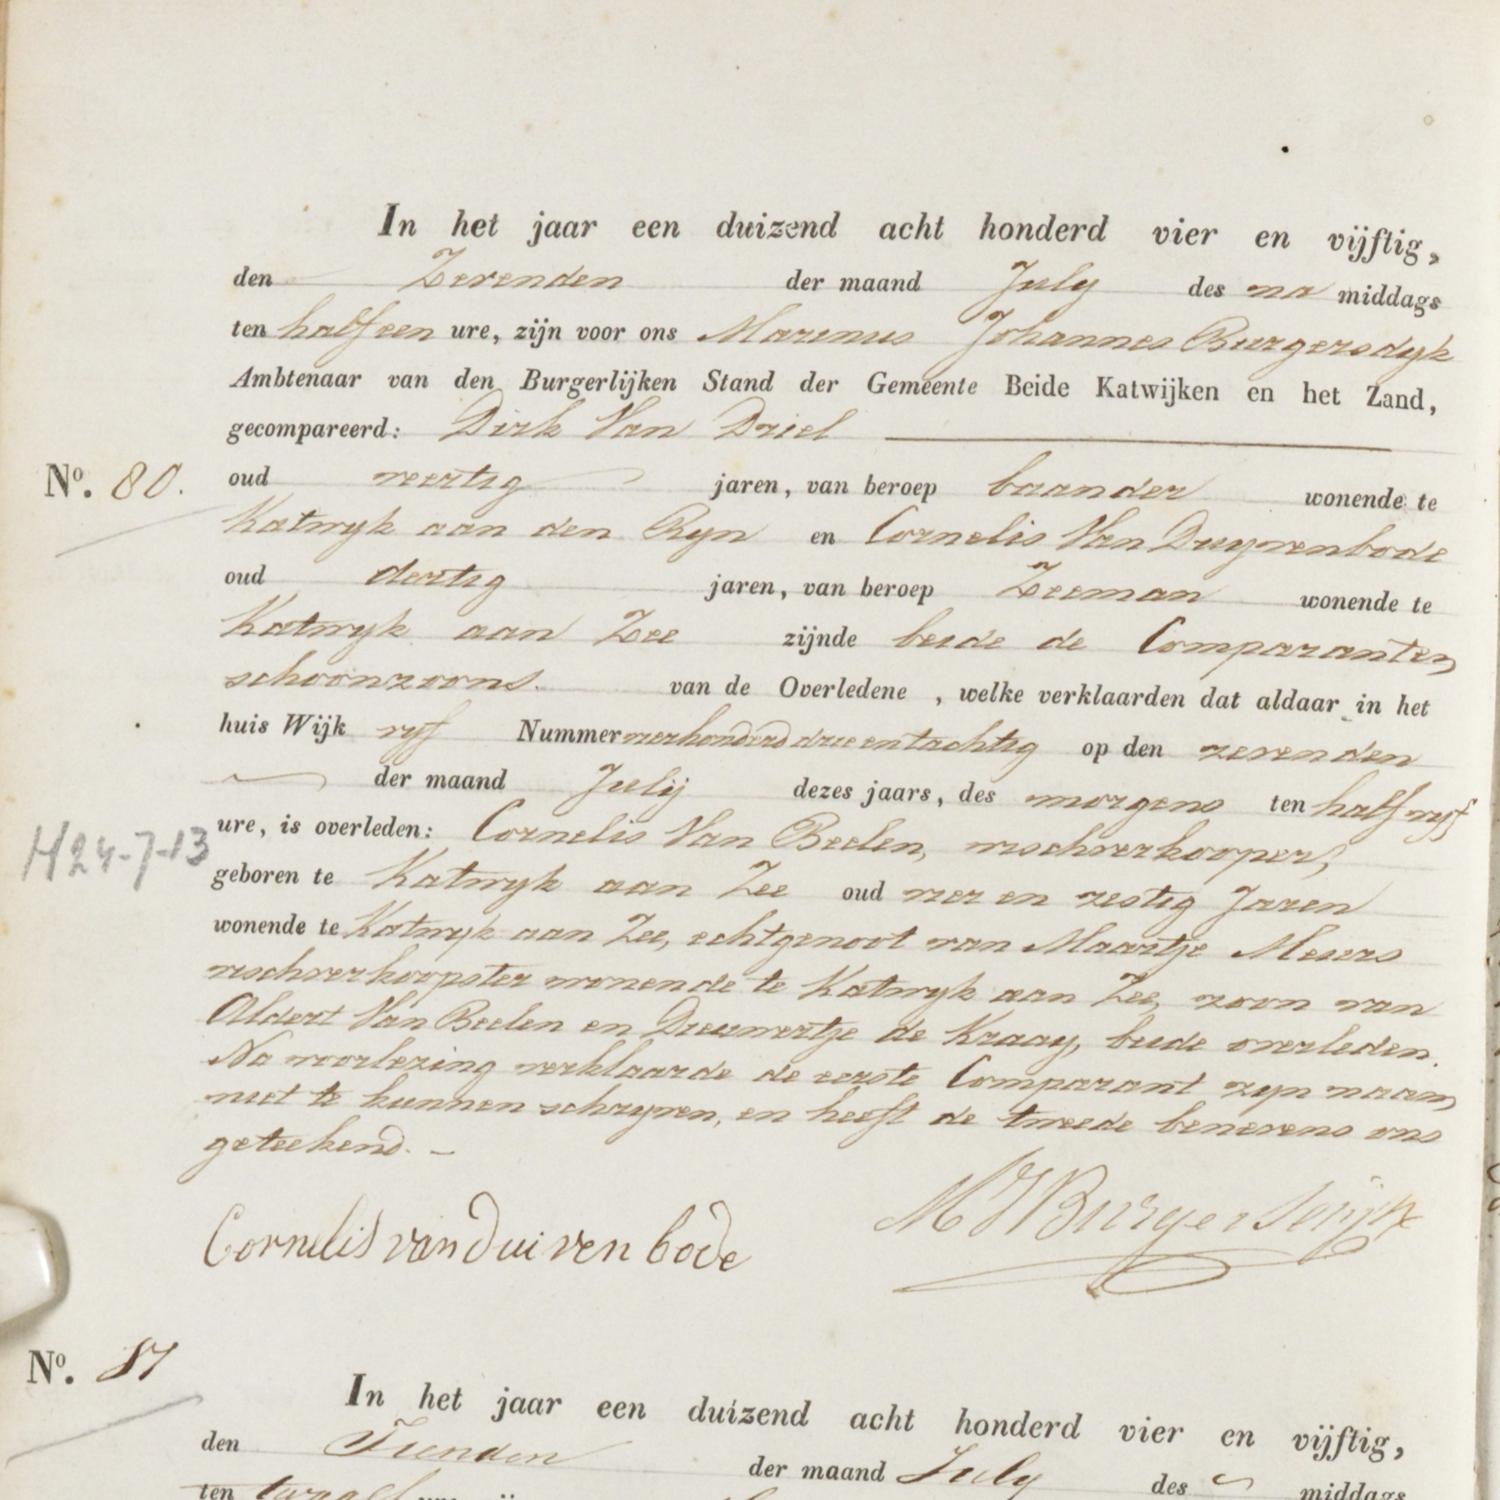 In het jaar een duizend acht honderd vier en vijftig,
den Zevenden der maand July des na middags
ten half een ure, zijn voor ons Marinus Johannes Burgersdyk
Ambtenaar van den Burgerlijken Stand der Gemeente Beide Katwijken en het Zand,
gecompareerd: Dirk Van Driel
No. 80. oud veertig jaren, van beroep baander wonende te
Katwyk aan den Ryn en Cornelis Van Duyvenbode
oud dertig jaren, van beroep Zeeman wonende te
Katwyk aan Zee zijnde beide de Comparanten
schoonzoons. van de Overledene , welke verklaarden dat aldaar in het
huis Wijk vyf Nummer vierhonderd drie en tachtig op den zevenden
der maand Julij dezes jaars, des morgens ten half vyf
H24-7-13
ure, is overleden: Cornelis Van Beelen, vischverkooper,
geboren te Katwyk aan Zee oud vier en zestig Jaren
wonende te Katwyk aan Zee, echtgenoot van Maartje Meurs
vischverkoopster wonende te Katwyk aan Zee, zoon van
Aldert Van Beelen en Dieuwertje de Kraay, beide overleden.
Na voorlezing verklaarde de eerste Comparant zyn naam
niet te kunnen schryven, en heeft de tweede benevens ons
geteekend. -
Cornelis van Duivenbode MJBurgersdijk
No. 81
In het jaar een duizend acht honderd vier en vijftig,
den Tienden der maand July des middags
ten twaalf ure